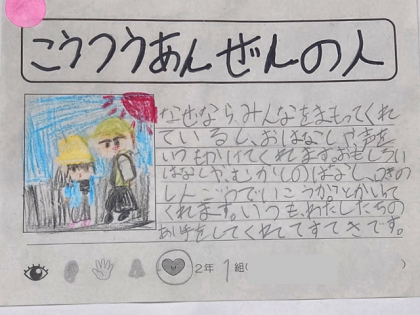 こうつうあんぜんの人
なぜならみんなをまもってくれ
ているし、おはなしや声を
いつもかけてくれます。おもしろい
はなしや、むかしのはなし、つぎの
しんごうでいこうか。とかいって
くれます。いつも、わたしたちの
あい手をしてくれてすてきです。
2年 1組( )